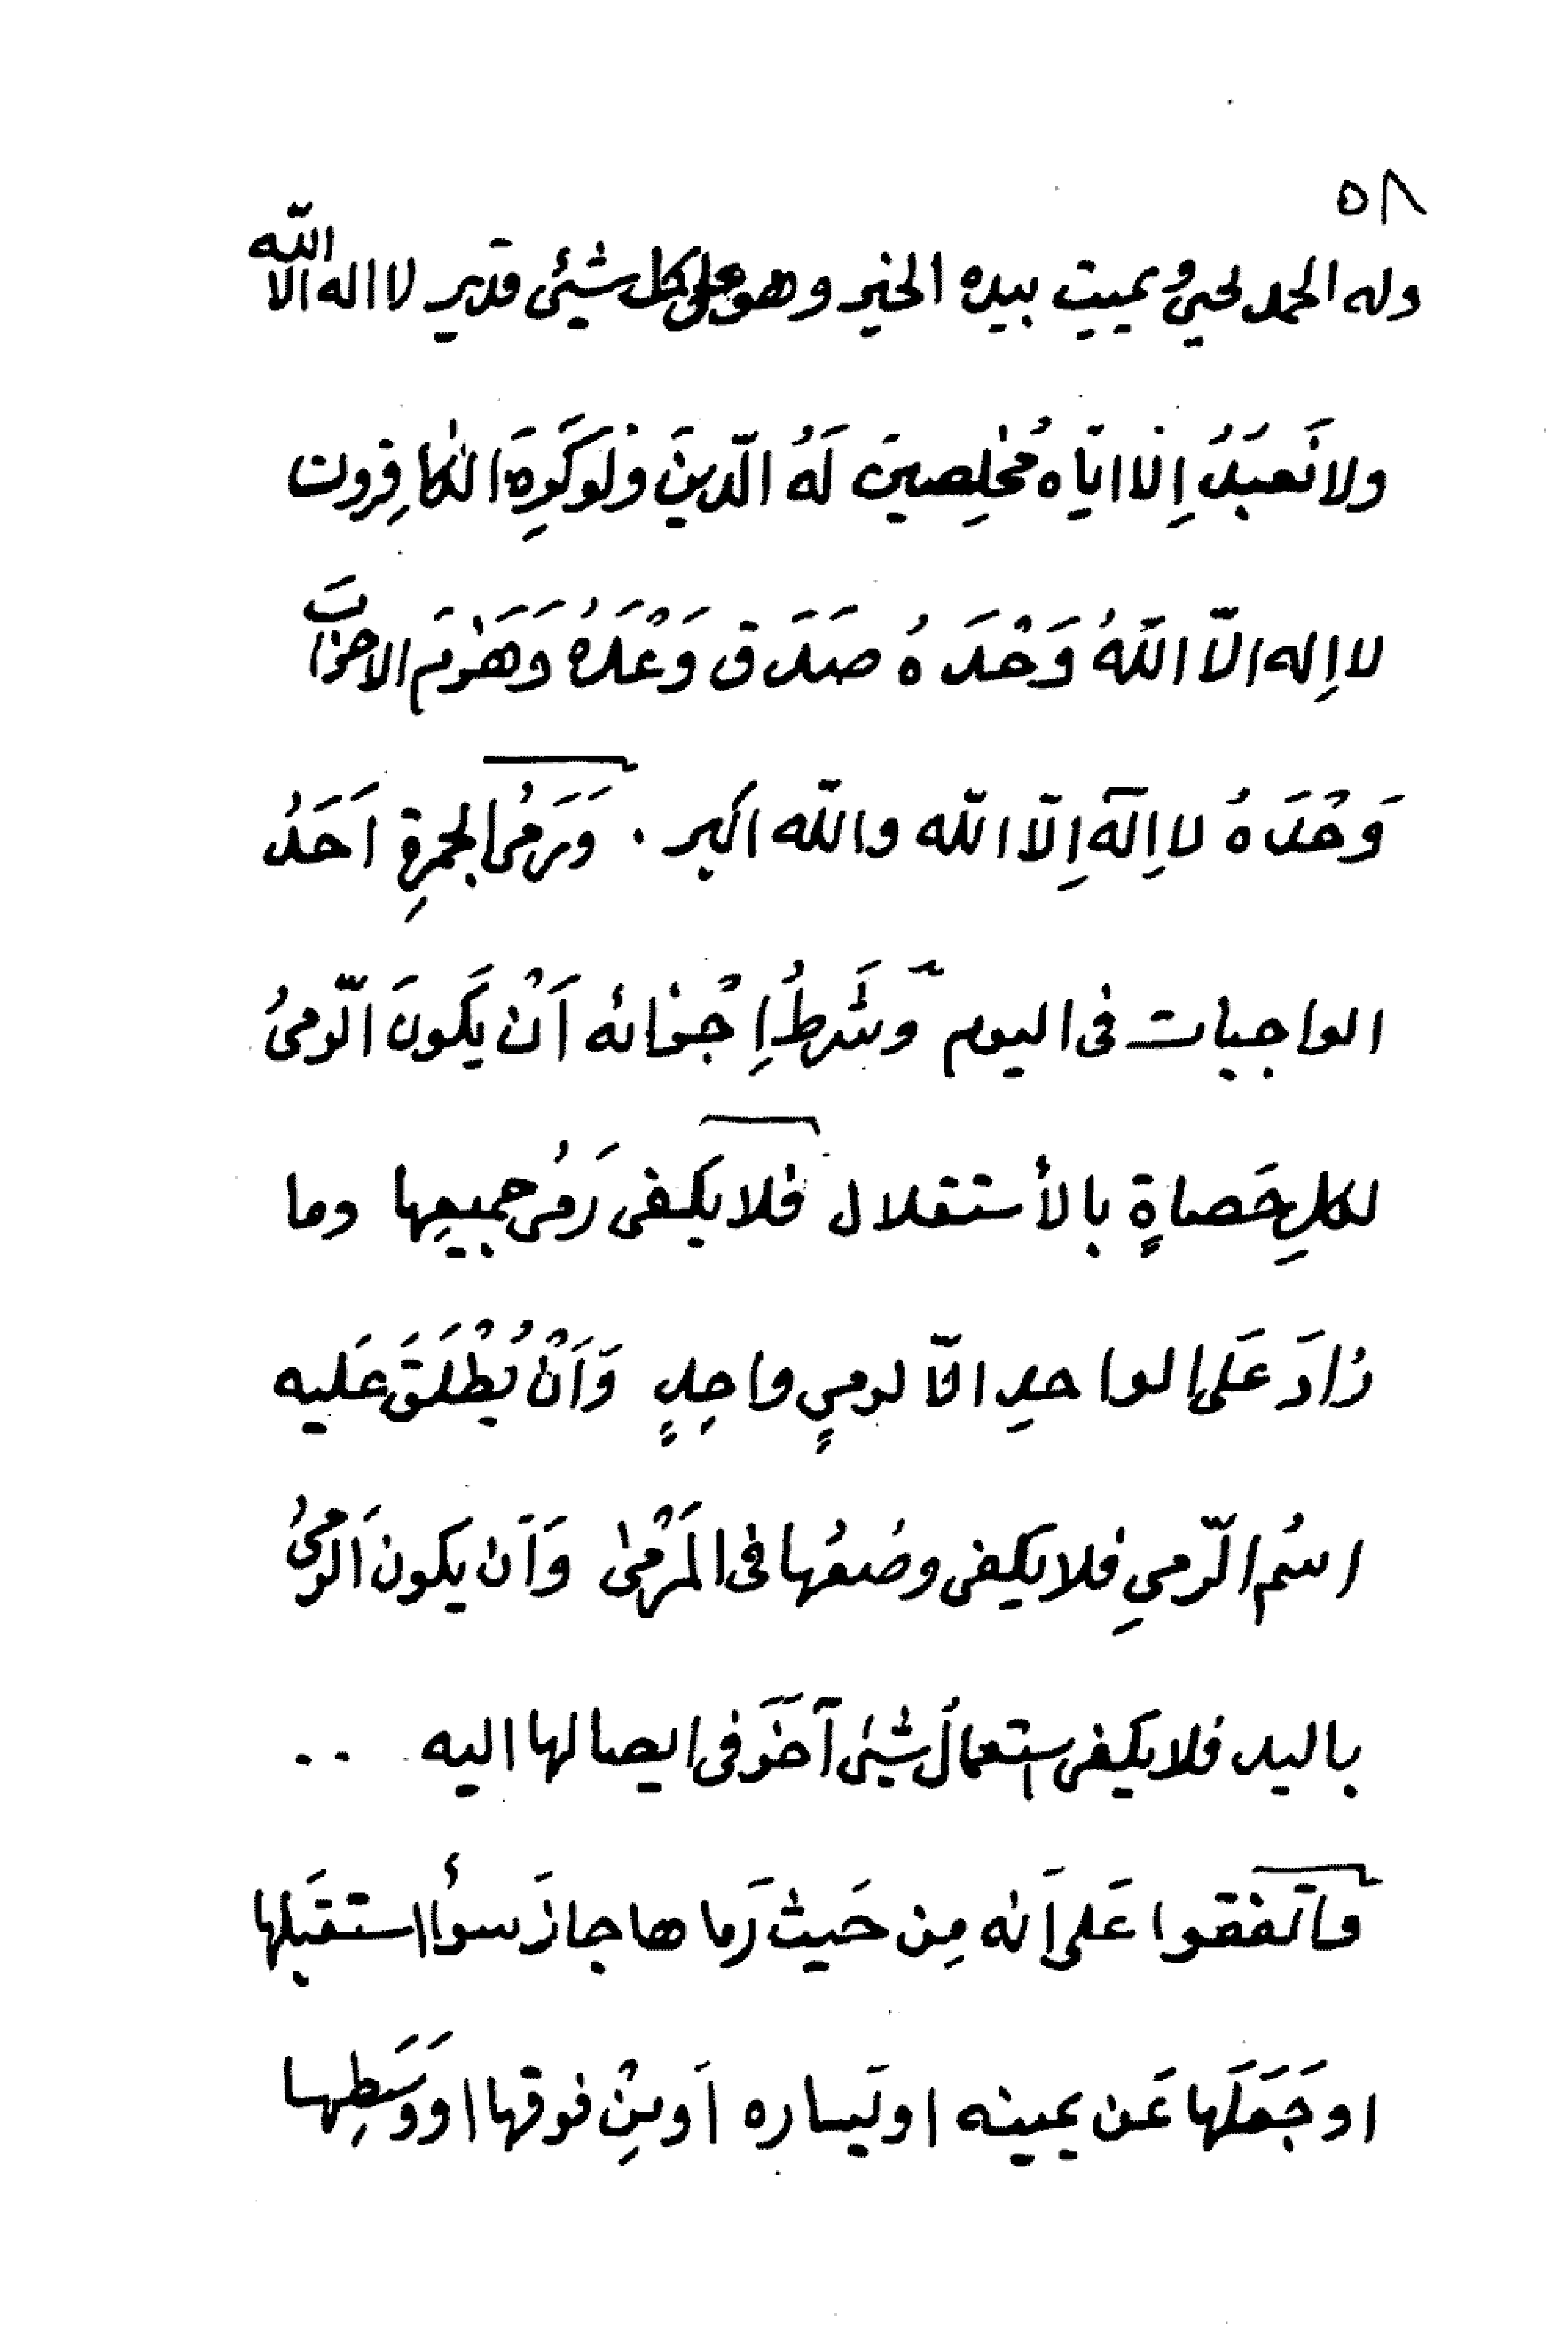 ٥٨
وله الحمد يحيي ويميت بيده الخير وهو على كل شيئى قدير لا اله الا الله
ولا نَعبُدُ اِلا ايّاه مُخلِصينَ لَهُ الدّينَ ولَو كَرِهَ الكافِرون
لا اِله الاّ اللّهُ وَحْدَهُ صَدَق وَعْدَهُ وَهَزَمَ الاحزابَ
وَحْدَهُ لا اِلهَ اِلّا اللّه واللّه اكبر . وَرَمىُ الجمرةِ اَحَدُ
الواجبات فى اليوم وشَرطُ اِجْزائه اَنْ يَكونَ الرّمىُ
لكلِ حَصاةٍ بالأستقلال فلا يَكفى رَمىُ جميعِها وما
زادَ عَلى الواحدِ الّا لرميٍ واحِدٍ وَاَنْ يُطْلَقَ عَليه
اسمُ الرّميِ فلا يَكفى وضعُها فى المَرْمىٰ وَاَن يكون الرمىُ
باليد فلا يكفى استعمالُ شيئى آخَرَ فى ايصالها اليه ..
واتفقوا عَلى اَنه مِن حَيث رَماها جازَ سوأ استقبَلها
او جَعَلَها عَن يمينه او يَساره اَو مِنْ فوقها او وَسَطِها